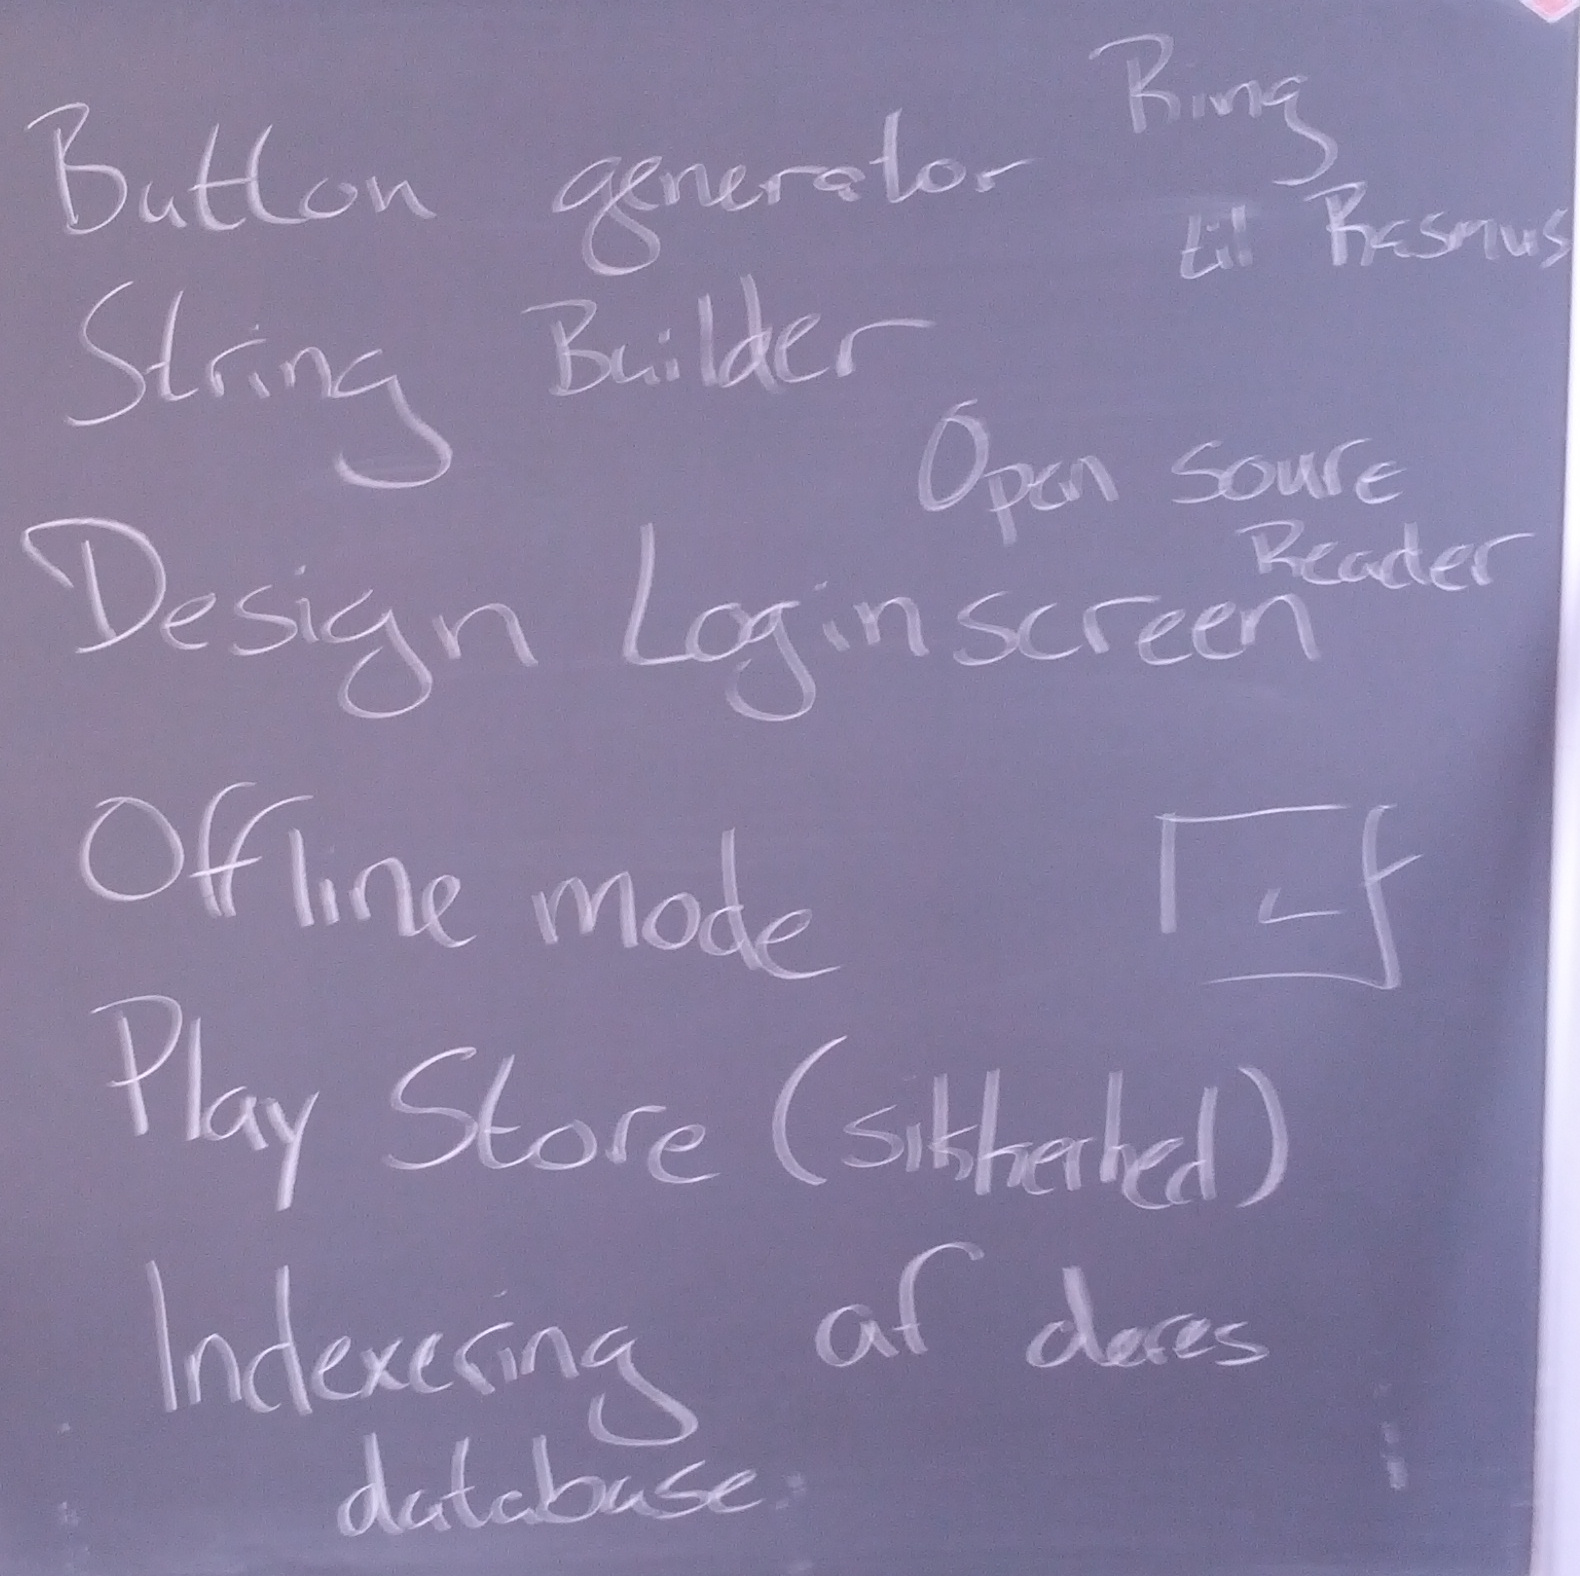 Button generator
Ring
til Rasmus
String Builder
Open soure
Reader
Design Loginscreen
Offline mode
Play Store (sikkerhed)
Indexering af deres
database